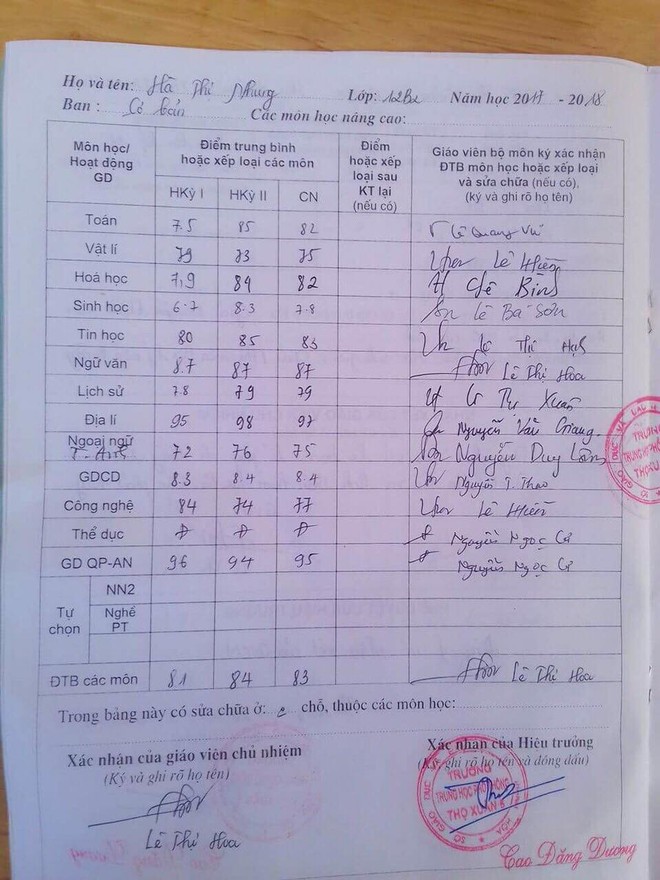 Họ và tên: Hà Thị Nhung Lớp: 12B2 Năm học 2017 - 2018
Ban : Cơ bản Các môn học nâng cao:
Môn học/ Hoạt động GD | Điểm trung bình hoặc xếp loại các môn | Điểm hoặc xếp loại sau KT lại (nếu có) | Giáo viên bộ môn ký xác nhận ĐTB môn học hoặc xếp loại và sửa chữa (nếu có), (ký và ghi rõ họ tên)
HKỳ I HKỳ II CN
Toán 7.5 85 82 Lê Quang Vũ
Vật lí 79 73 75 Lê Hiền
Hoá học 7,9 84 82 Bình
Sinh học 6.7 8.3 7.8 Lê Bá Sơn
Tin học 80 85 83 Lê Thị
Ngữ văn 8.7 87 87 Lê Thị Hoa
Lịch sử 7.8 79 79 Xuân
Địa lí 95 98 97 Nguyễn Văn Giang
Ngoại ngữ T. Anh 72 76 75 Nguyễn Duy
GDCD 8.3 8.4 8.4 Nguyễn T. Thao
Công nghệ 84 74 77 Lê Hiền
Thể dục Đ Đ Đ Nguyễn Ngọc
GD QP-AN 96 94 95 Nguyễn Ngọc
Tự chọn
NN2
Nghề PT
ĐTB các môn 8.1 84 83 Lê Thị Hoa
Trong bảng này có sửa chữa ở: chỗ, thuộc các môn học:
Xác nhận của giáo viên chủ nhiệm
(Ký và ghi rõ họ tên)
Lê Thị Hoa
Xác nhận của Hiệu trưởng
(Ký và ghi rõ họ tên và đóng dấu)
TRƯỜNG
TRUNG HỌC PHỔ THÔNG
THỌ XUÂN 5
Cao Đăng Dương